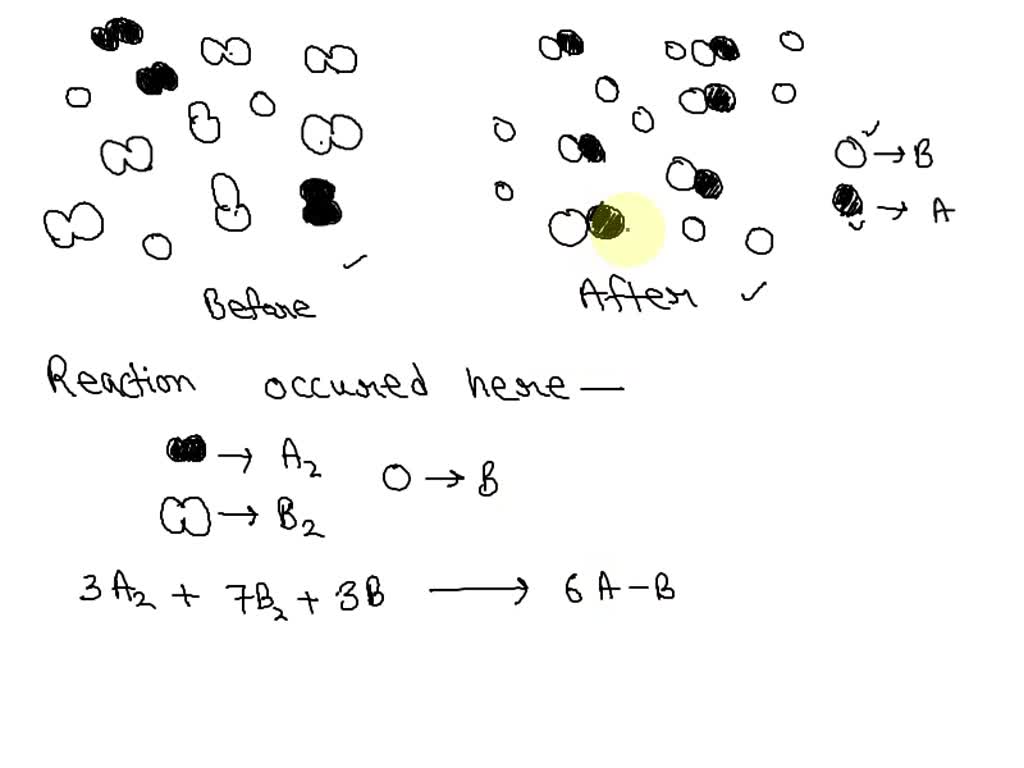 → B
→ A
Before
After
Reaction occured here —
→ A₂
→ B
→ B₂
3A₂ + 7B₂ + 3B ⟶ 6 A-B